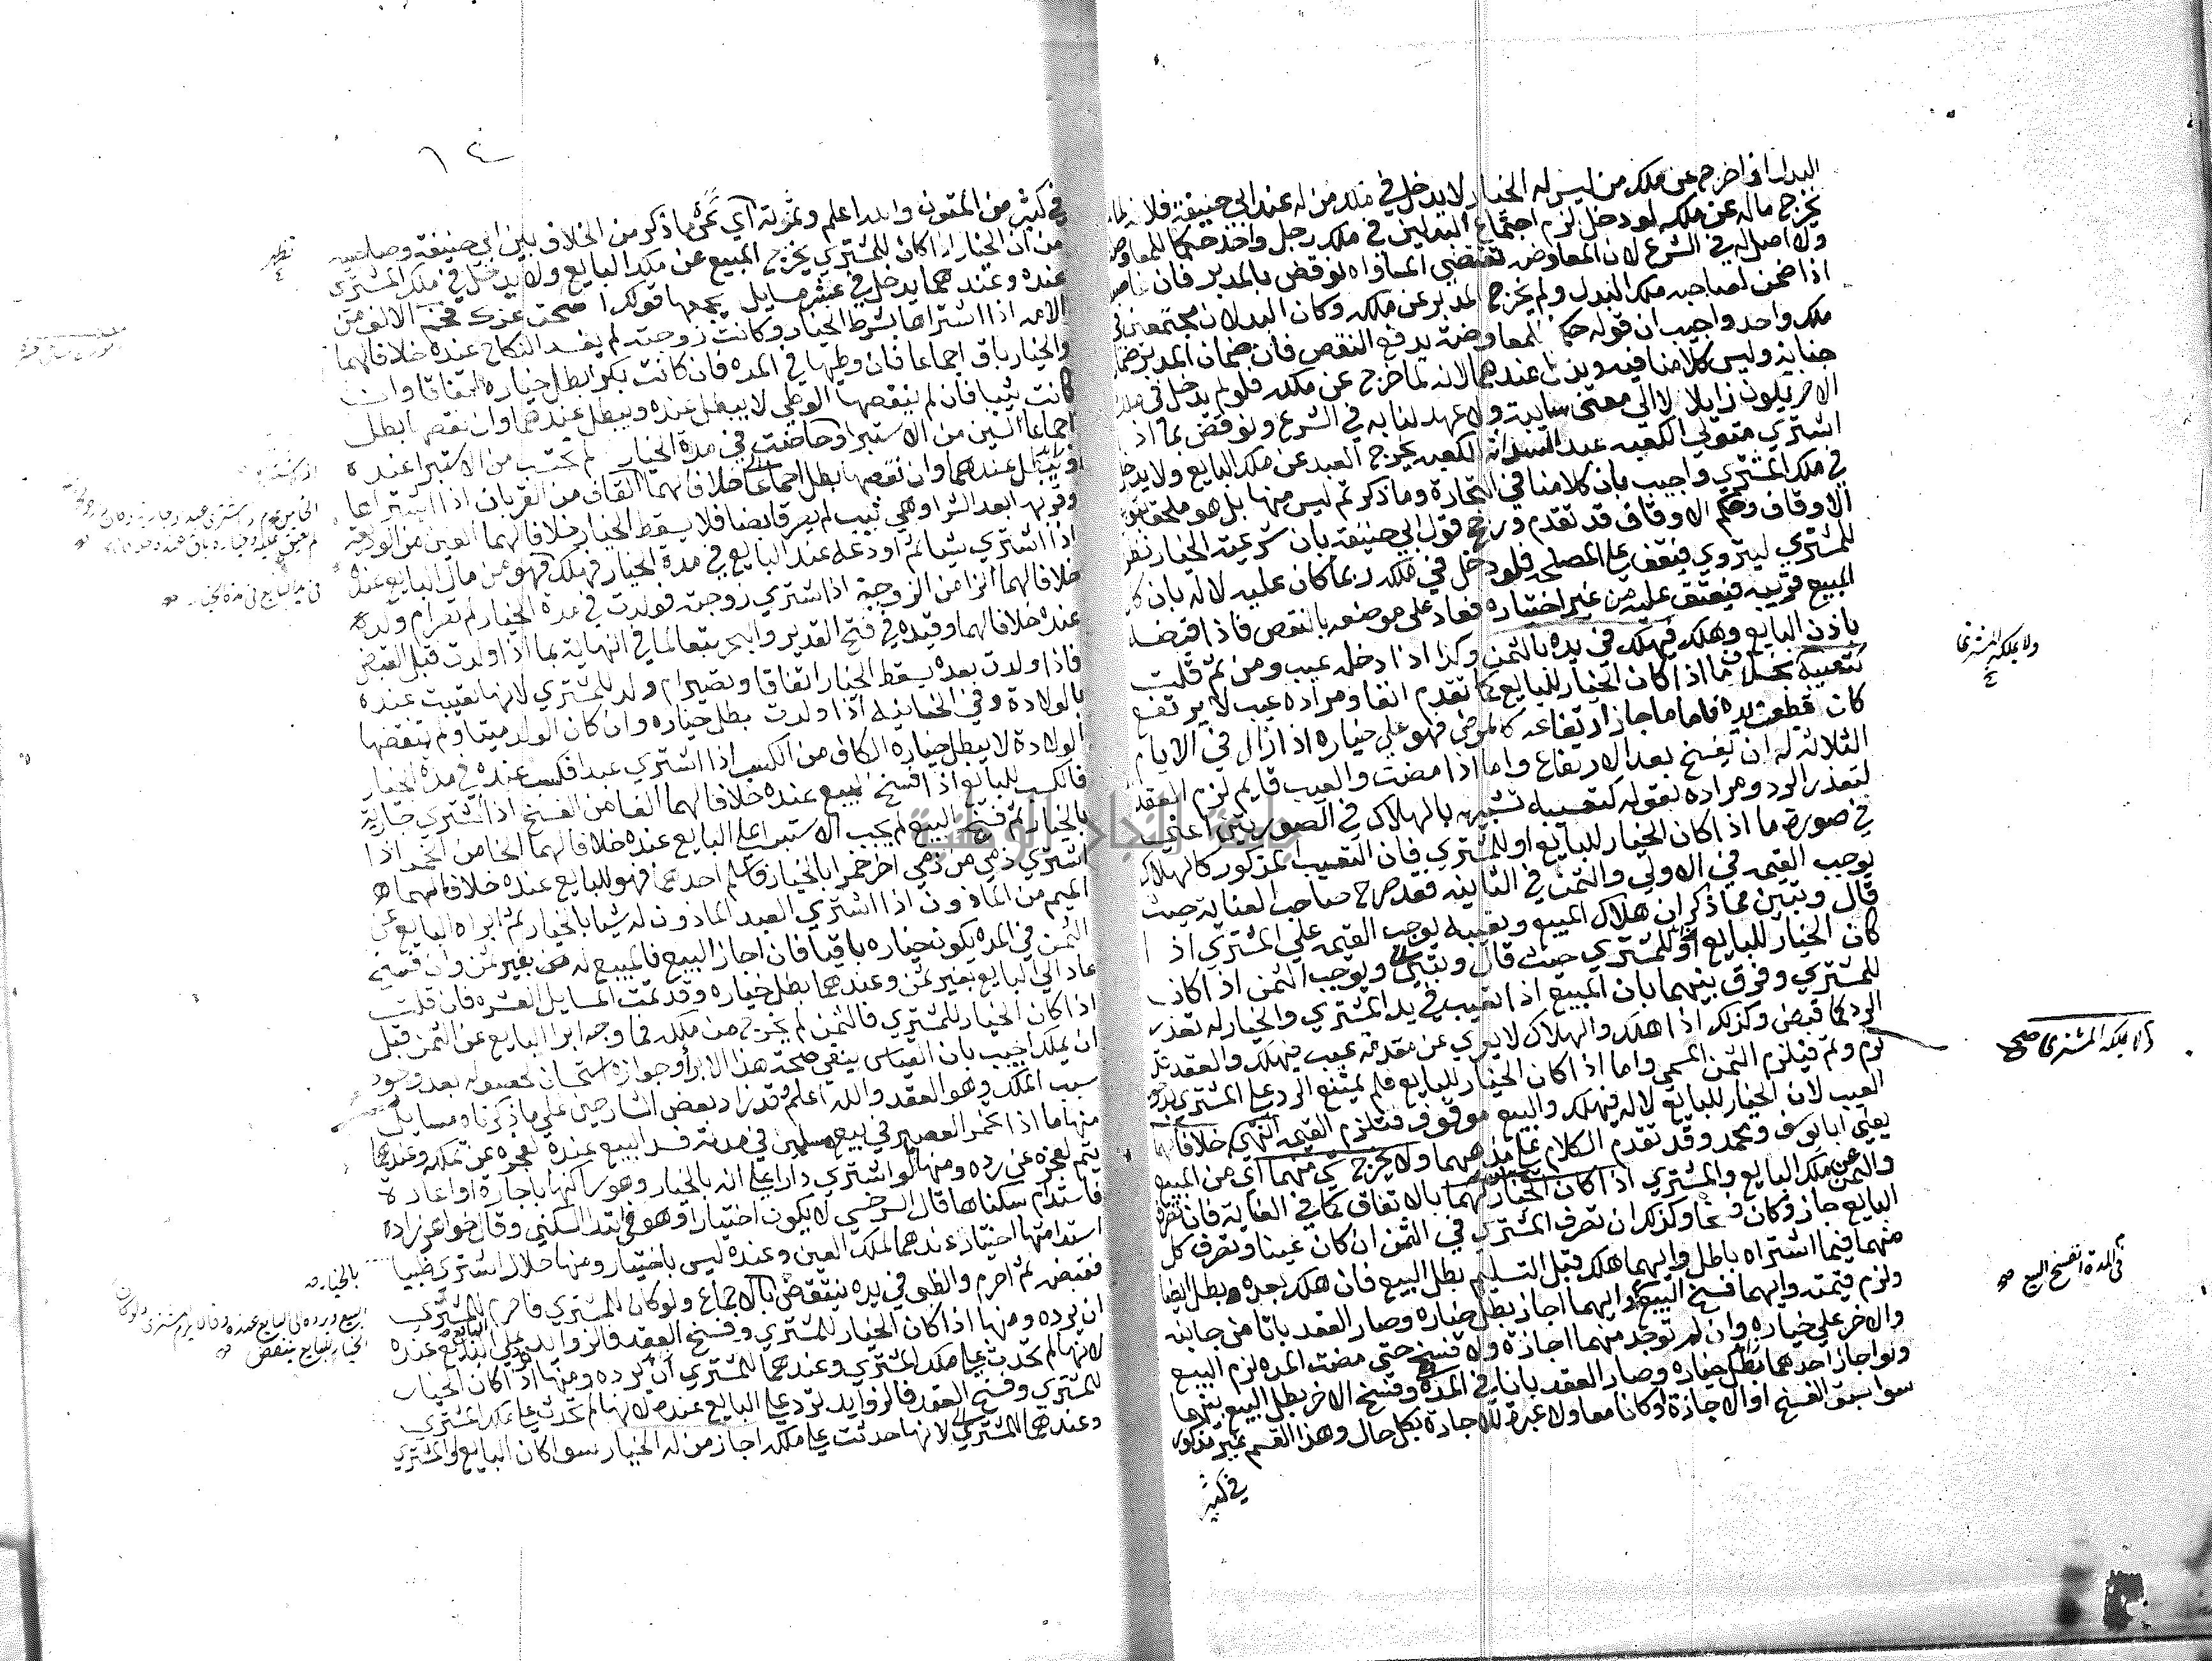 البدل اذا خرج عن ملك من ليس له الخيار لا يدخل في ملك من له عند ابي حنيفة فلانه لما
يخرج ماله عن ملكه لو دخل لزم اجتماع البدلين في ملك رجل واحد حكما للمعاوضة
ولا اصل له في الشرع لان المعاوضه تقتضي المساواه ونوقض بالمدبر فان غاصبه
اذا ضمن لصاحبه ملك البدل ولم يخرج المدبر عن ملكه وكان البدلان مجتمعين في
ملك واحد واجيب ان قوله حكما للمعاوضة يدفع النقض فان ضمان المدبر ضمان
جناية وليس كلامنا فيه وعندهما لانه لما خرج عن ملكه فلو لم يدخل في ملك
الاخر يكون زايلا لا الي مالك ولا عهد لنا به في الشرع ونوقض بما اذا
اشتري متولي الكعبه عبد السدانه الكعبه يخرج العبد عن ملك البايع ولا يدخل
في ملك المشتري واجيب بان كلامنا في التجارة وما ذكر ثم ليس منها بل هو ملحق بتوابع
الاوقاف وحكم الاوقاف قد تقدم ورجح قول ابي حنيفة بان شرعية الخيار نظرا
للمشتري ليتروي فيقف علي المصلحه فلو دخل في ملكه ربما كان عليه لا له بان كان
المبيع قريبه فيعتق عليه من غير اختياره فعاد علي موضعه بالنقض فاذا قبضه
باذن البايع وهلك فيهلك في يده بالثمن وكذا اذا دخله عيب ومن ثم قلت
كتعيبه بخلاف ما اذا كان الخيار للبايع كما تقدم انفا ومراده عيب لا يرتفع
كان قطعت يده فاما ما جاز ارتفاعه كالمرض فهو علي خياره اذا زال في الايام
الثلاثه له ان يفسخ بعد الارتفاع واما اذا مضت والعيب قايم لزم العقد
لتعذر الرد ومراده بقوله كتعيبه تشبيه بالهلاك في الصورتين اعني
في صورة ما اذا كان الخيار للبايع او للمشتري فان التعيب المذكور كالهلاك
يوجب القيمه في الاولي والثمن في الثانيه فقد صرح صاحب العناية حيث
قال وتبين مما ذكر ان هلاك المبيع وتعيبه يوجب القيمه علي المشتري اذا
كان الخيار للبايع او للمشتري حيث قال ويوجب الثمن اذا كان
للمشتري وفرق بينهما بان المبيع اذا تعيب في يد المشتري والخيار له تعذر
الرد كما قبض وكذلك اذا هلك والهلاك لا يعري عن مقدمة عيب فيهلك والعقد قد
لزم وتم فيلزم الثمن المسمي واما اذا كان الخيار للبايع فلم يمتنع الرد علي المشتري بدخول
العيب لان الخيار للبايع لا له فيهلك والبيع موقوف فتلزم القيمه انتهي خلافا لهما
يعني ابا يوسف ومحمد وقد تقدم الكلام علي مذهبهما ولا يخرج شي منهما اي من المبيع
والثمن عن ملك البايع والمشتري اذا كان الخيار لهما بالاتفاق كما في العناية فان تصرف
البايع جاز وكان فسخا وكذلك ان تصرف المشتري في الثمن ان كان عينا وتصرف كل
منهما فيما اشتراه باطل وايهما هلك قبل التسليم بطل البيع فان هلك بعده بطل ايضا
ولزم قيمته وايهما فسخ البيع وايهما اجاز بطل خياره وصار العقد باتا من جانبه
والاخر علي خياره وان لم توجد منهما اجازة ولا فسخ حتي مضت المده لزم البيع
ولو اجاز احدهما بطل خياره وصار العقد باتا في المدة وفسخ الاخر بطل البيع
سوا سبق الفسخ او الاجازة او كانا معا ولا عبرة للاجازة بكل حال وهذا القسم غير مذكور
في كثير
ولا يملكه المشتري
ولا يملكه المشتري صح
في المدة انفسخ البيع صح
١٤
في كثير من المتون والله اعلم وثمرته اي ما ذكر من الخلاف بين ابي حنيفة وصاحبيه
من ان الخيار اذا كان للمشتري يخرج المبيع عن ملك البايع ولا يدخل في ملك المشتري
عنده وعندهما يدخل في عشر مسايل يجمعها قولك اسحق عزك فخم الالف من
الامه اذا اشتراها بشرط الخيار وكانت زوجته لم يفسد النكاح عنده خلافا لهما
والخيار باق اجماعا فان وطيها في المده فان كانت بكرا بطل خياره اتفاقا وان
كانت ثيبا فان لم ينقصها الوطي لا يبطل عنده ويبطل عندهما وان نقصها بطل
اجماعا السين من الاستبرا وحاضت في مدة الخيار لم تحتسب من الاستبرا عنده
وتبطل عندهما وان نقصها بطل اجماعا خلافا لهما القاف من القربان اذا اشتراها
وقربها بعد الشرا وهي ثيب لم يصر قابضا فلا يسقط الخيار خلافا لهما العين من الوديعة
اذا اشتري شيا ثم اودعه عند البايع في مدة الخيار فهلك فهو من مال البايع عنده
خلافا لهما الزا من الزوجية اذا اشتري زوجته فولدت في مدة الخيار لم تصر ام ولد
عنده خلافا لهما وقيده في فتح القدير والبحر تبعا لما في النهاية بما اذا ولدت قبل القبض
فاذا ولدت بعده يسقط الخيار اتفاقا وتصير ام ولد للمشتري لانها تعيبت عنده
بالولادة وفي الخانيه اذا ولدت بطل خياره وان كان الولد ميتا ولم تنقصها
الولادة لا يبطل خياره الكاف من الكسب اذا اشتري عبدا فكسب عنده في مدة الخيار
فالكسب للبايع اذا فسخ البيع عنده خلافا لهما الفا من الفسخ اذا اشتري جارية
بالخيار ثم فسخ البيع لم يجب الاستبرا علي البايع عنده خلافا لهما الخا من الخمر اذا
اشتري ذمي من ذمي اخر خمرا بالخيار فاسلم احدهما فهو للبايع عنده خلافا لهما
الميم من الماذون اذا اشتري العبد الماذون له شيا بالخيار ثم ابراه البايع عن
الثمن في المده يكون خياره باقيا فان اجاز البيع فالمبيع له بغير ثمن وان فسخ
عاد الي البايع بغير ثمن وعندهما بطل خياره وقد تمت المسايل العشره فان قلت
اذا كان الخيار للمشتري فالثمن لم يخرج من ملكه فما وجه ابرا البايع عن الثمن قبل
ان يملكه اجيب بان القياس ينفي صحة هذا الابرا وجوازه استحسان لحصوله بعد وجود
سبب الملك وهو العقد والله اعلم وقد زاد بعض الشارحين علي ما ذكرناه مسايل
منها ما اذا تخمر العصير في بيع مسلمين في مدته فسد البيع عنده لعجزه عن تملكه وعندهما
يتم لعجزه عن رده ومنها لو اشتري دارا علي انه بالخيار وهو ساكنها باجارة او اعارة
فاستدام سكناها قال السرخسي لا يكون اختيارا وهو في ابتدا السكني وقال خواهر زاده
استدامتها اختيار عندهما لملك العين وعنده ليس باختيار ومنها حلال اشتري ظبيا
فقبضه ثم احرم والظبي في يده ينتقض بالاجماع ولو كان للمشتري فاحرم للمشتري
ان يرده ومنها اذا كان الخيار للمشتري وفسخ العقد فالزوايد ترد علي البايع عنده
لانها لم تحدث علي ملك المشتري وعندهما للمشتري ان يرده ومنها اذا كان الخيار
للمشتري وفسخ العقد فالزوايد ترد علي البايع عنده لانها لم تحدث علي ملك المشتري
وعندهما للمشتري لانها حدثت علي ملكه اجاز من له الخيار سوا كان البايع او المشتري
بالخيار صح
الخيار للبايع ينتقض صح